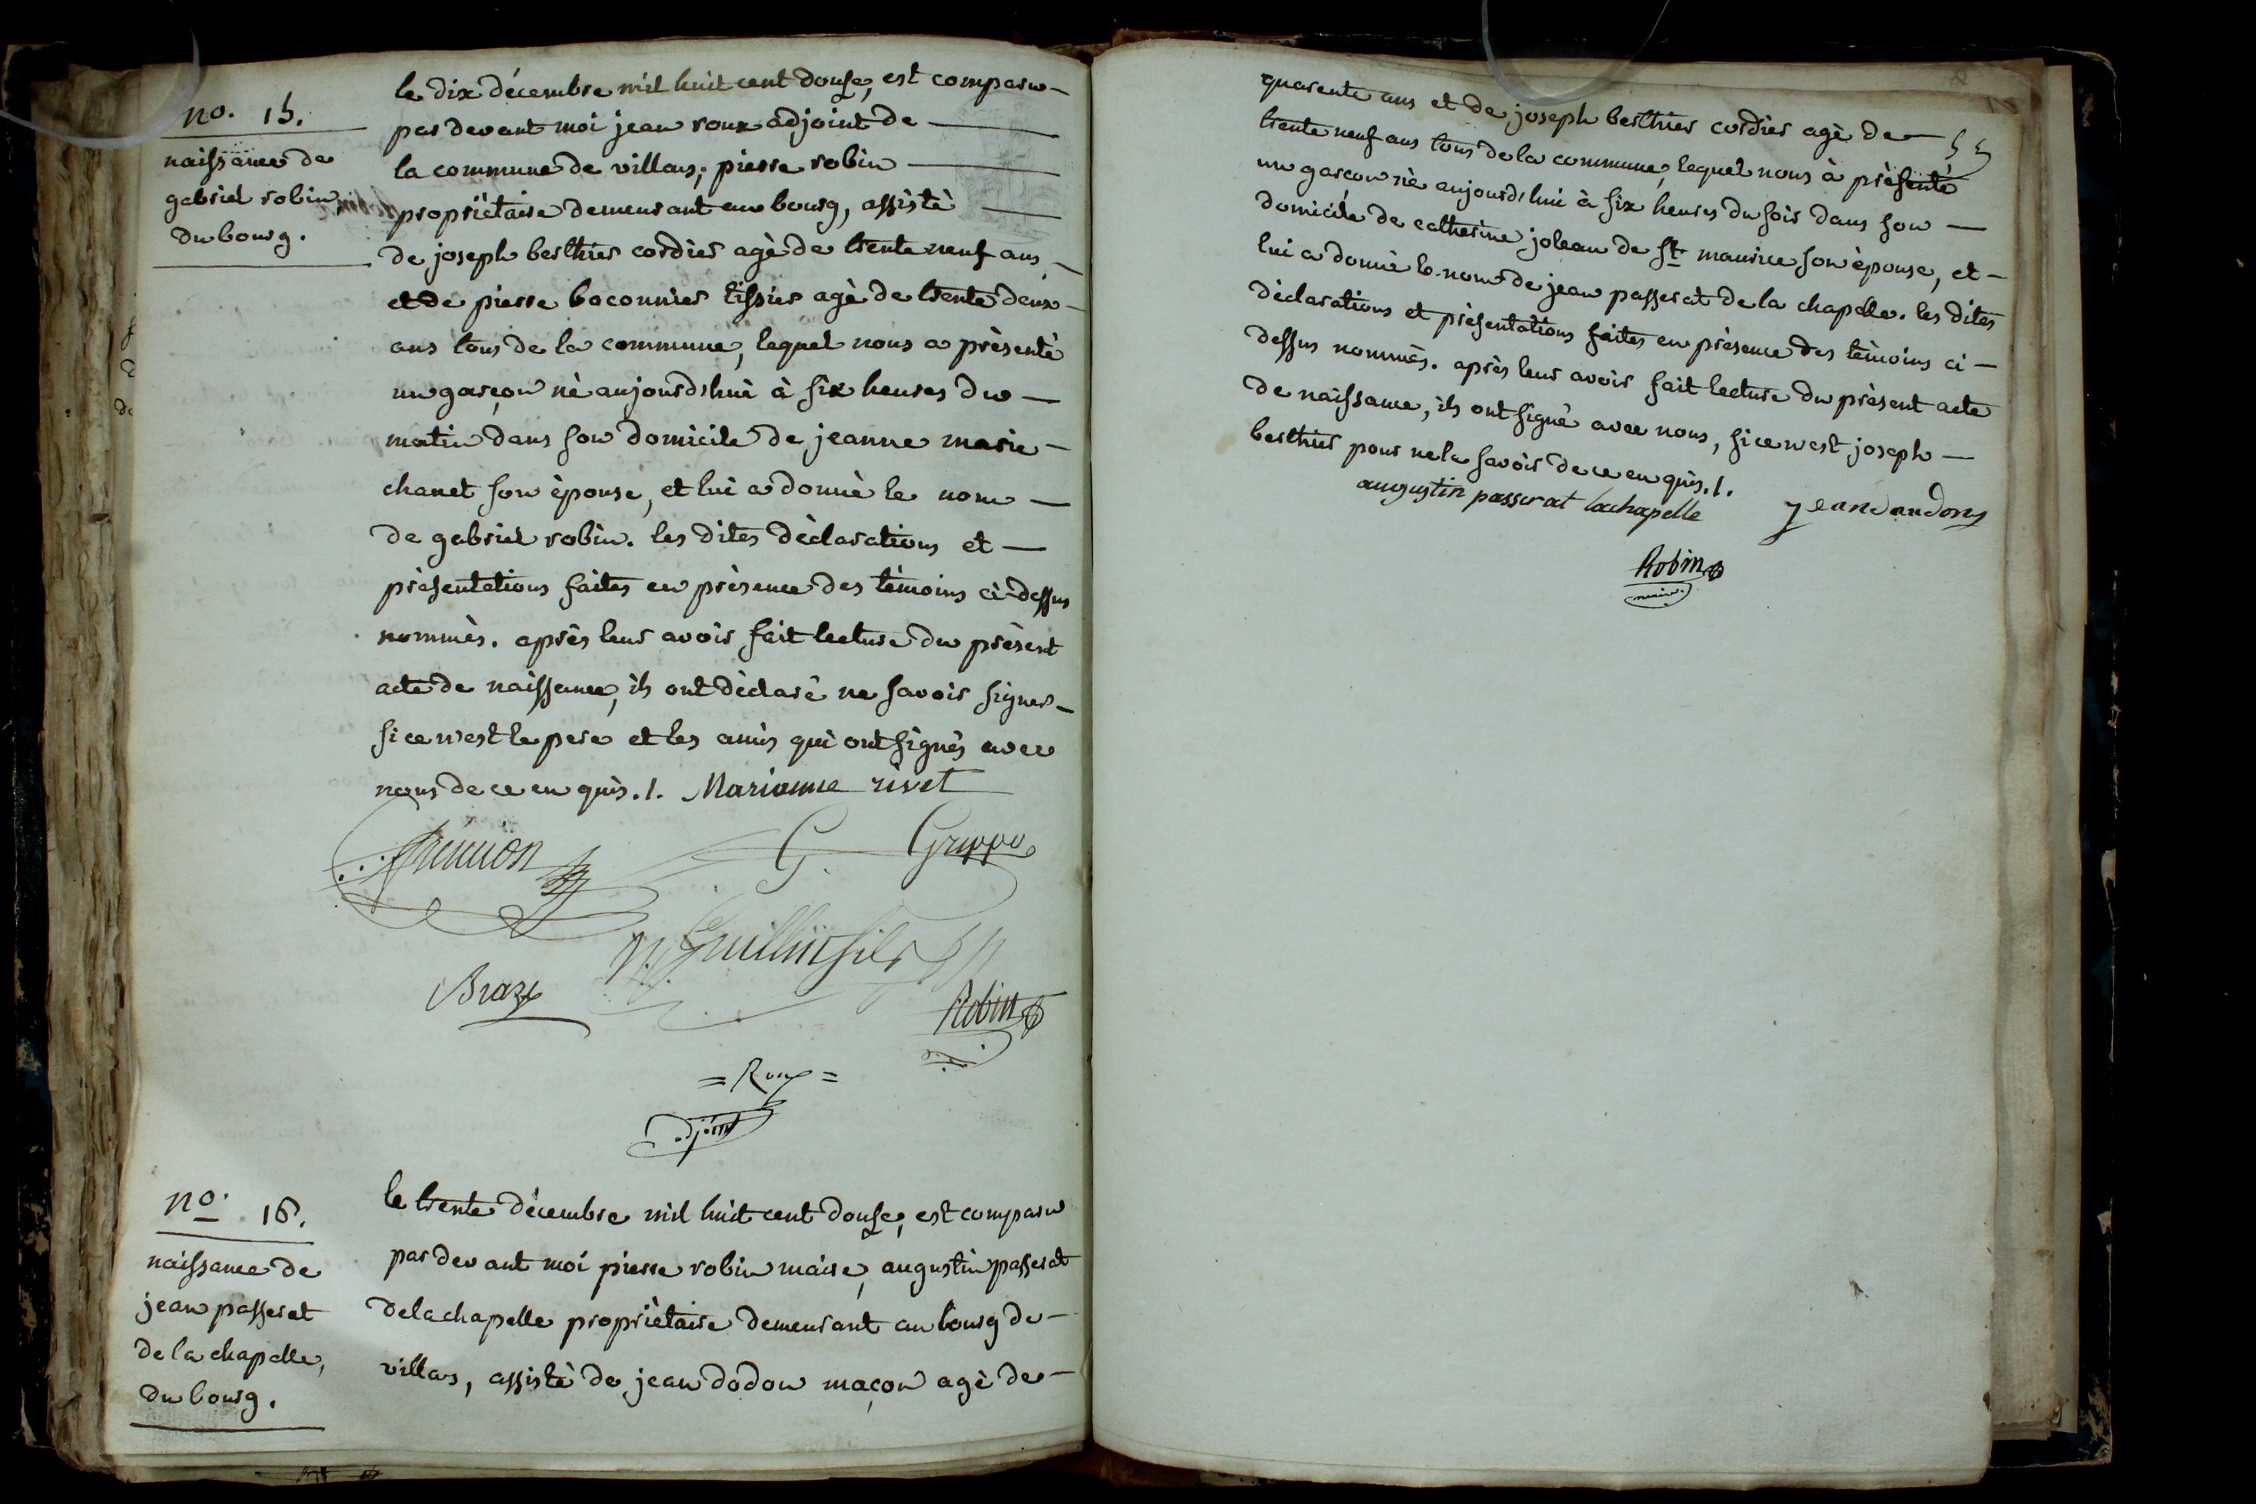 no. 15.
naissance de
gabriel robin,
du bourg.
le dix décembre mil huit cent douse, est comparu
par devant moi jean roux adjoint de
la commune de villars, pierre robin
propriètaire demeurant au bourg, assistè
de joseph berthier cordier agè de trente neuf ans
et de pierre boconnier tissier agè de trente deux
ans tous de la commune, lequel nous a prèsentè
un garçon nè aujourd'hui à six heures du
matin dans son domicile de jeanne marie
chanet son èpouse, et lui a donnè le nom
de gabriel robin. les dites dèclarations et
prèsentations faites en prèsence des tèmoins ci-dessus
nommès. après leur avoir fait lecture du prèsent
acte de naissance, ils ont dèclarè ne savoir signer
si ce n'est le pere et les amis qui ont signès avec
nous de ce enquis./. Marianne rivet
G. Greppo
Guillin fils
Braze
Robin
= Roux =
adjoint
no. 16.
naissance de
jean passerat
de la chapelle,
du bourg.
le trente décembre mil huit cent douse, est comparu
par devant moi pierre robin maire, augustin passerat
de la chapelle propriètaire demeurant au bourg de
villars, assistè de jean dodon maçon agè de
55
quarente ans et de joseph berthier cordier agè de
trente neuf ans tous de la commune, lequel nous à prèsentè
un garcon nè aujourd'hui à six heures du soir dans son
domicile de catherine joleau de St maurice son èpouse, et
lui a donnè le nom de jean passerat de la chapelle. les dites
dèclarations et prèsentations faites en prèsence des tèmoins ci
dessus nommès. après leur avoir fait lecture du prèsent acte
de naissance, ils ont signè avec nous, si ce n'est joseph
berthier pour ne la savoir de ce enquis./.
augustin passerat lachapelle
jean daudon
Robin
maire